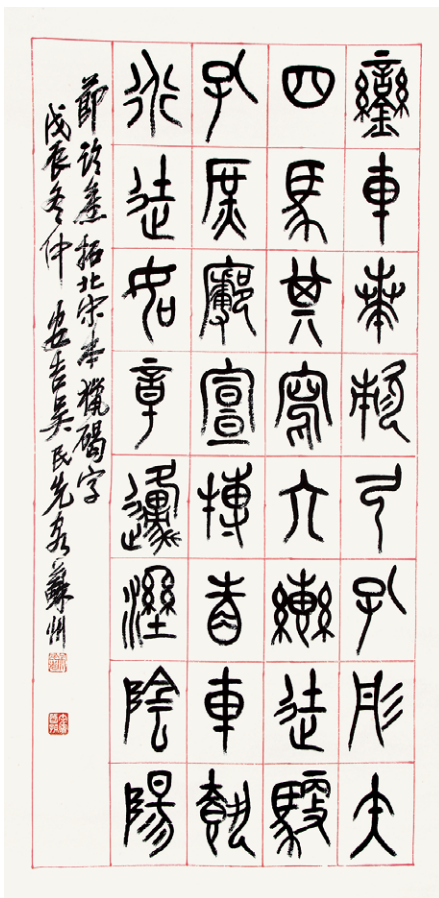 鑾車𠦪欶弓孔彤矢
四馬其寫六轡徒馭
孔庶宣搏眚車載
行徒如章邍溼陰陽
節臨舊拓北宋本獵碣字
戊辰冬仲 安吉吳民先客蘇州